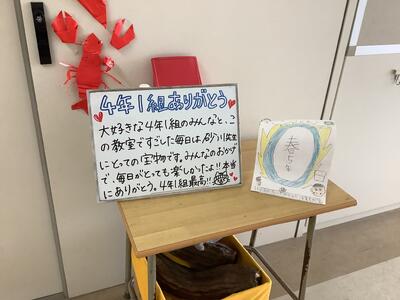 4年1組ありがとう
大好きな4年1組のみんなと、こ
の教室ですごした毎日は、砂川先生
にとっての宝物です。みんなのおかげ
で、毎日がとても楽しかったよ!!本当
にありがとう。4年1組最高!!
0
日